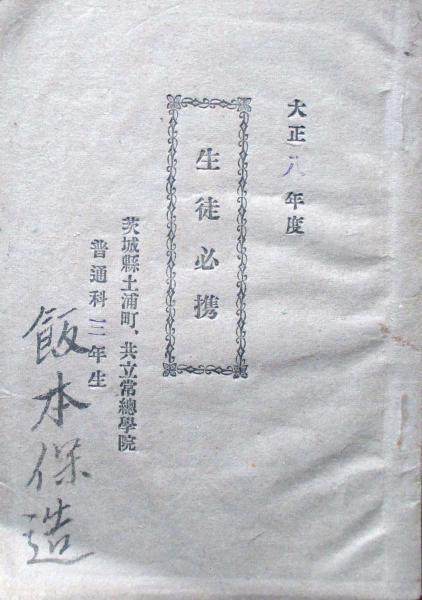 大正八年度
生徒必携
茨城縣土浦町、共立常總學院
普通科二年生
飯本保造